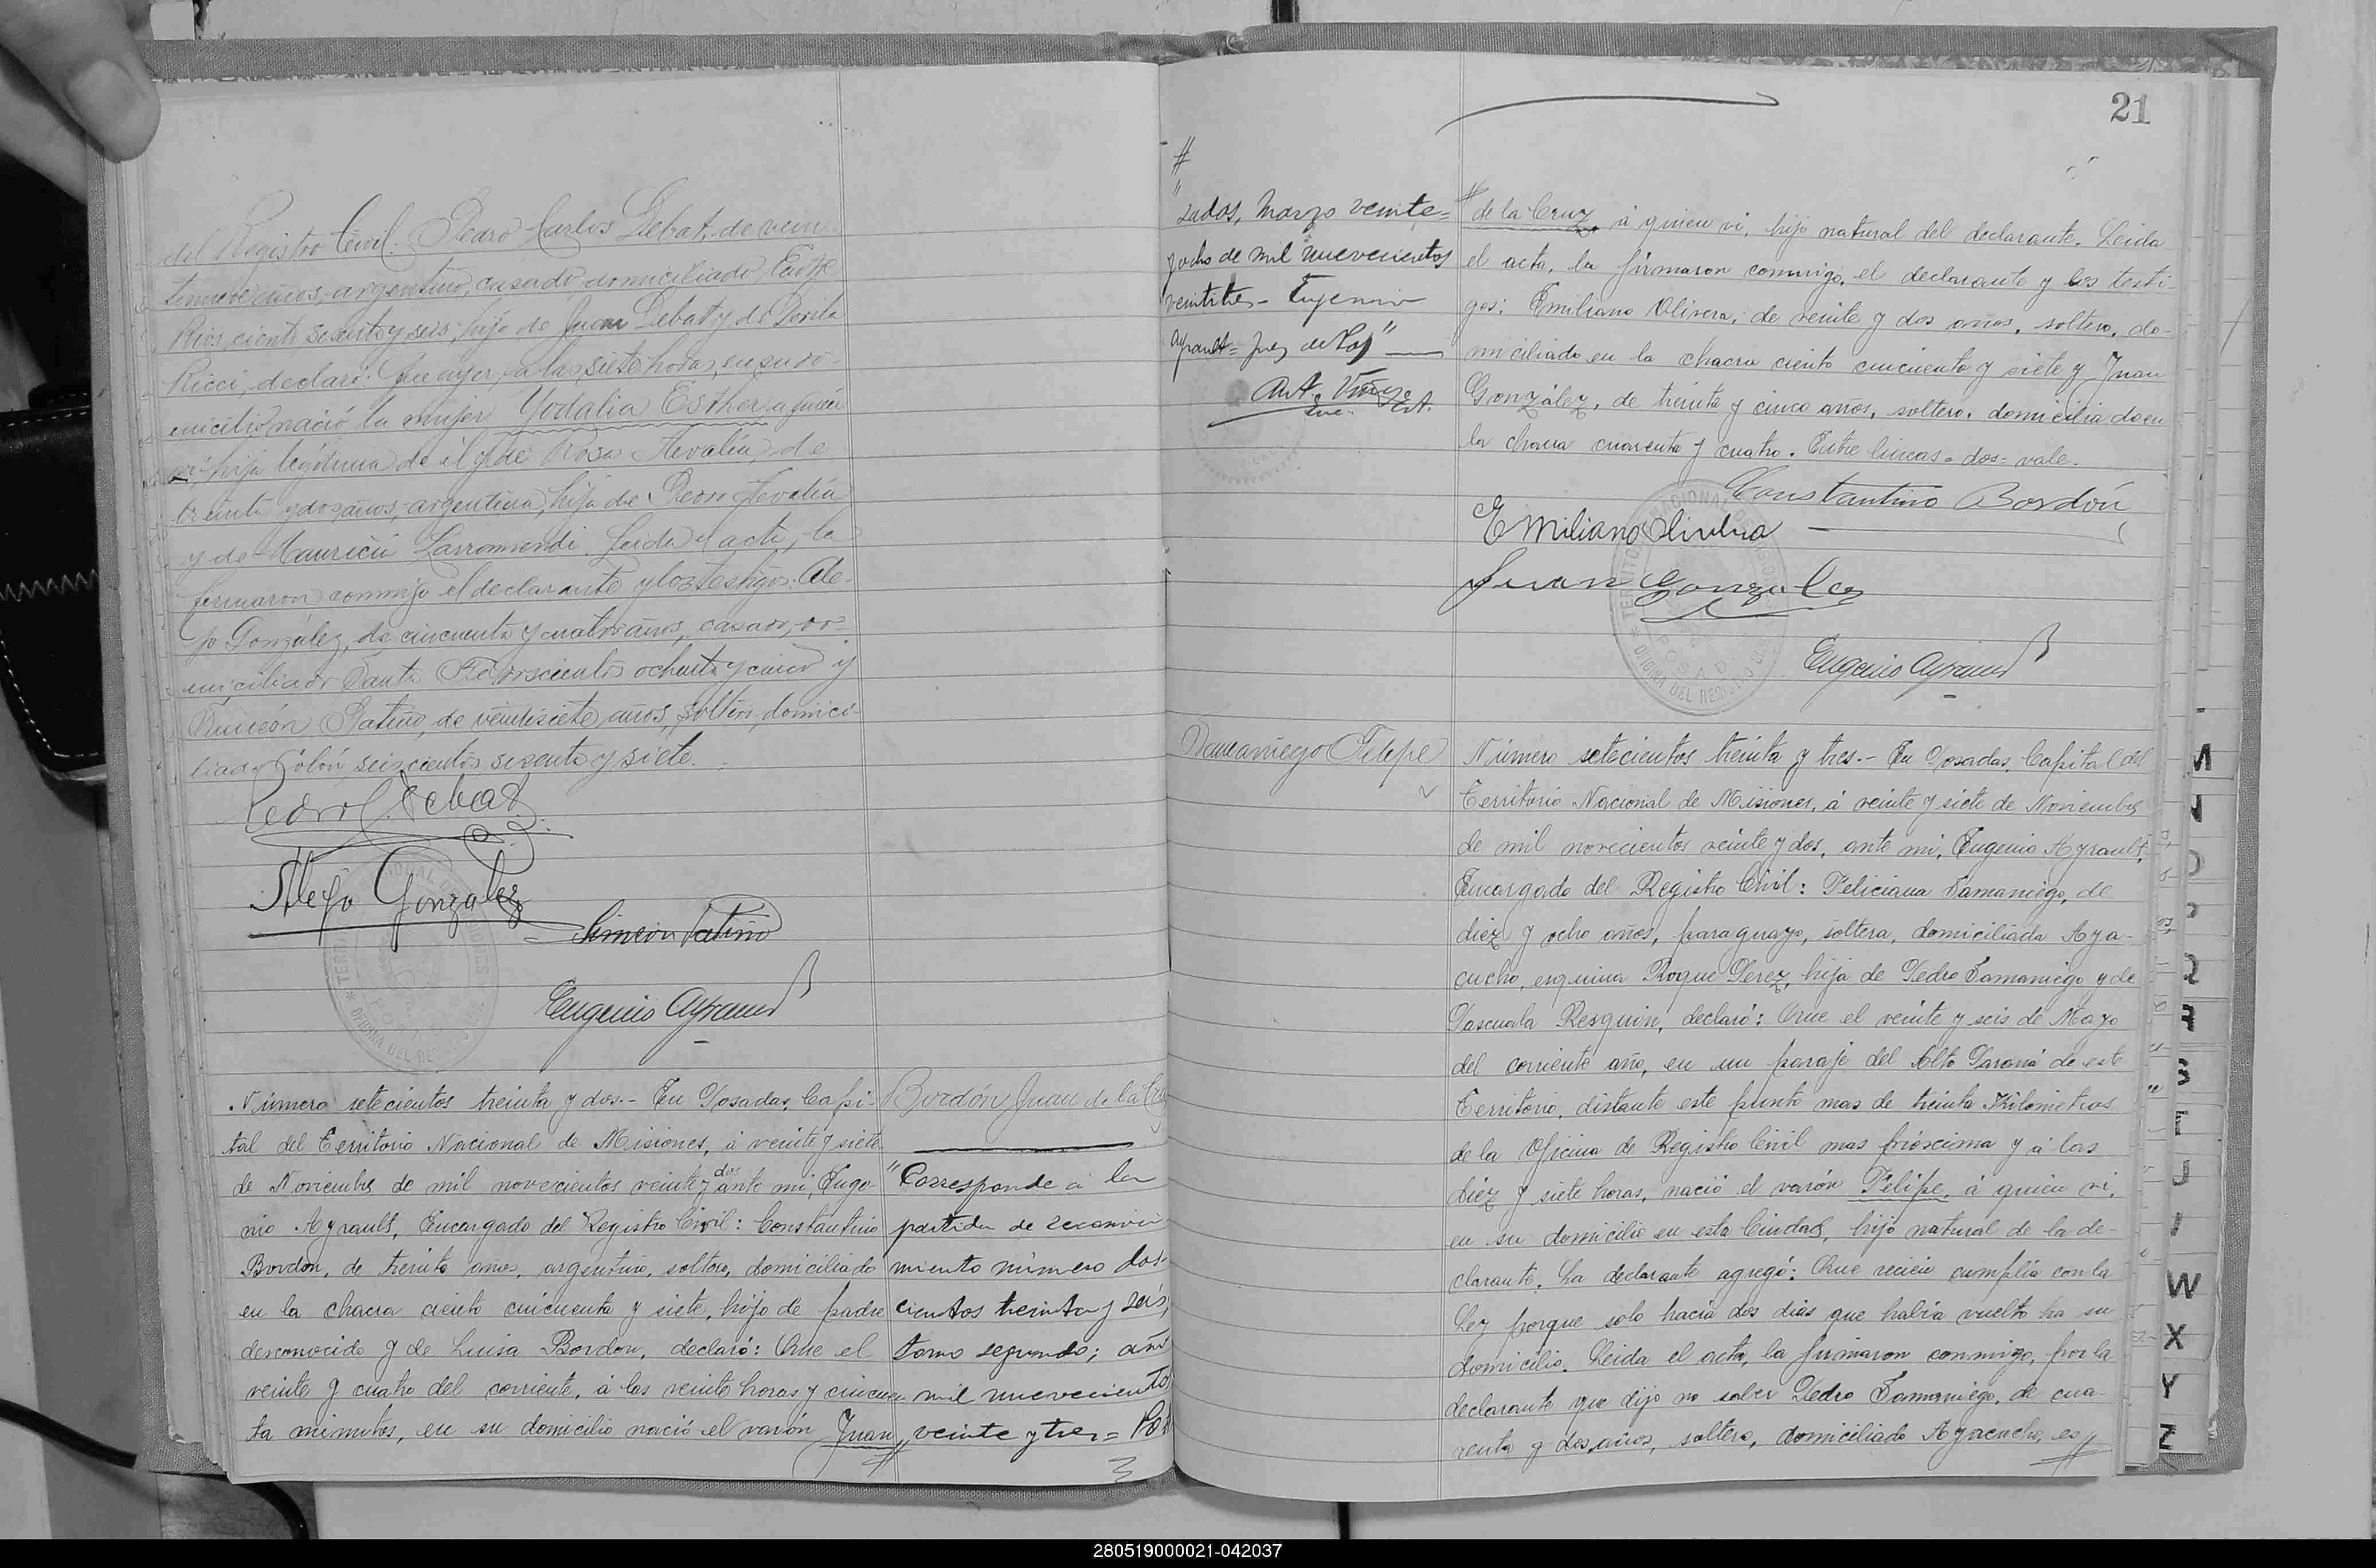 del Registro Civil: Pedro Carlos Debat, de vein-
tinueve años, argentino, casado, domiciliado Entre
Rios ciento sesenta y seis, hijo de Juan Debat y de
Ricci, declaró: Que ayer, a las siete horas, en su do-
micilio nació la mujer Yodalia Esther a quien
vi, hija legítima de él y de Rosa Hevalia, de
treinta y dos años, argentina, hija de Pedro Hevalia
y de Mauricia Larromendi. Leida el acta, la
firmaron conmigo el declarante y los testigos: Ale-
jo González, de cincuenta y cuatro años, casado, do-
miciliado Santa Fé ochenta y cinco y
Simeón Patiño, de veintisiete años, soltero, domici-
liado Colón seiscientos sesenta y siete.
Pedro C. Debat
Alejo Gonzalez
Simeon Patiño
Eugenio Ayrault
Número setecientos treinta y dos.- En Posadas, Capi-
tal del Territorio Nacional de Misiones, á veinte y siete
de Noviembre de mil novecientos veinte y dos ante mi, Euge-
nio Ayrault, Encargado del Registro Civil: Constantino
Bordon, de treinta años, argentino, soltero, domiciliado
en la chacra ciento cincuenta y siete, hijo de padre
desconocido y de Luisa Bordon, declaró: Que el
veinte y cuatro del corriente, á las veinte horas y cincuen-
ta minutos, en su domicilio nació el varón Juan //
Bordón Juan de la Cruz
"Corresponde a la
partida de reconoci-
miento número dos-
cientos treinta y seis,
tomo segundo; año
mil nuevecientos
veinte y tres = Po
21
#
"
sadas, Marzo veinte =
y ocho de mil nuevecientos
veintitres - Eugenio
Ayrault = Juez de Paz" —
# de la Cruz, á quien vi, hijo natural del declarante. Leida
el acta, la firmaron conmigo, el declarante y los testi-
gos: Emiliano Olivera, de veinte y dos años, soltero, do-
miciliado en la chacra ciento cincuenta y siete y Juan
González, de treinta y cinco años, soltero, domiciliado en
la chacra cuarenta y cuatro. Entre lineas = dos = vale.
Constantino Bordón
Emiliano Olivera
Juan Gonzalez
Eugenio Ayrault
Samaniego Felipe
Número setecientos treinta y tres.- En Posadas, Capital del
Territorio Nacional de Misiones, á veinte y siete de Noviembre
de mil novecientos veinte y dos, ante mi, Eugenio Ayrault,
Encargado del Registro Civil: Feliciana Samaniego, de
diez y ocho años, paraguaya, soltera, domiciliada Aya-
cucho, esquina Roque Perez, hija de Pedro Samaniego y de
Pascuala Resquin, declaró: Que el veinte y seis de Mayo
del corriente año, en un paraje del Alto Paraná de este
Territorio, distante este punto mas de treinta Kilometros
de la Oficina de Registro Civil mas próxcima y á las
diez y siete horas, nació el varón Felipe, á quien vi,
en su domicilio en esta Ciudad, hijo natural de la de-
clarante. La declarante agregó: Que recien cumplia con la
Ley porque solo hacia dos dias que habia vuelto ha su
domicilio. Leida el acta, la firmaron conmigo, por la
declarante que dijo no saber Pedro Samaniego, de cua-
renta y dos años, soltero, domiciliado Ayacucho, es //
M
N
O
P
Q
R
S
T
J
I
W
X
Y
Z
280519000021-042037